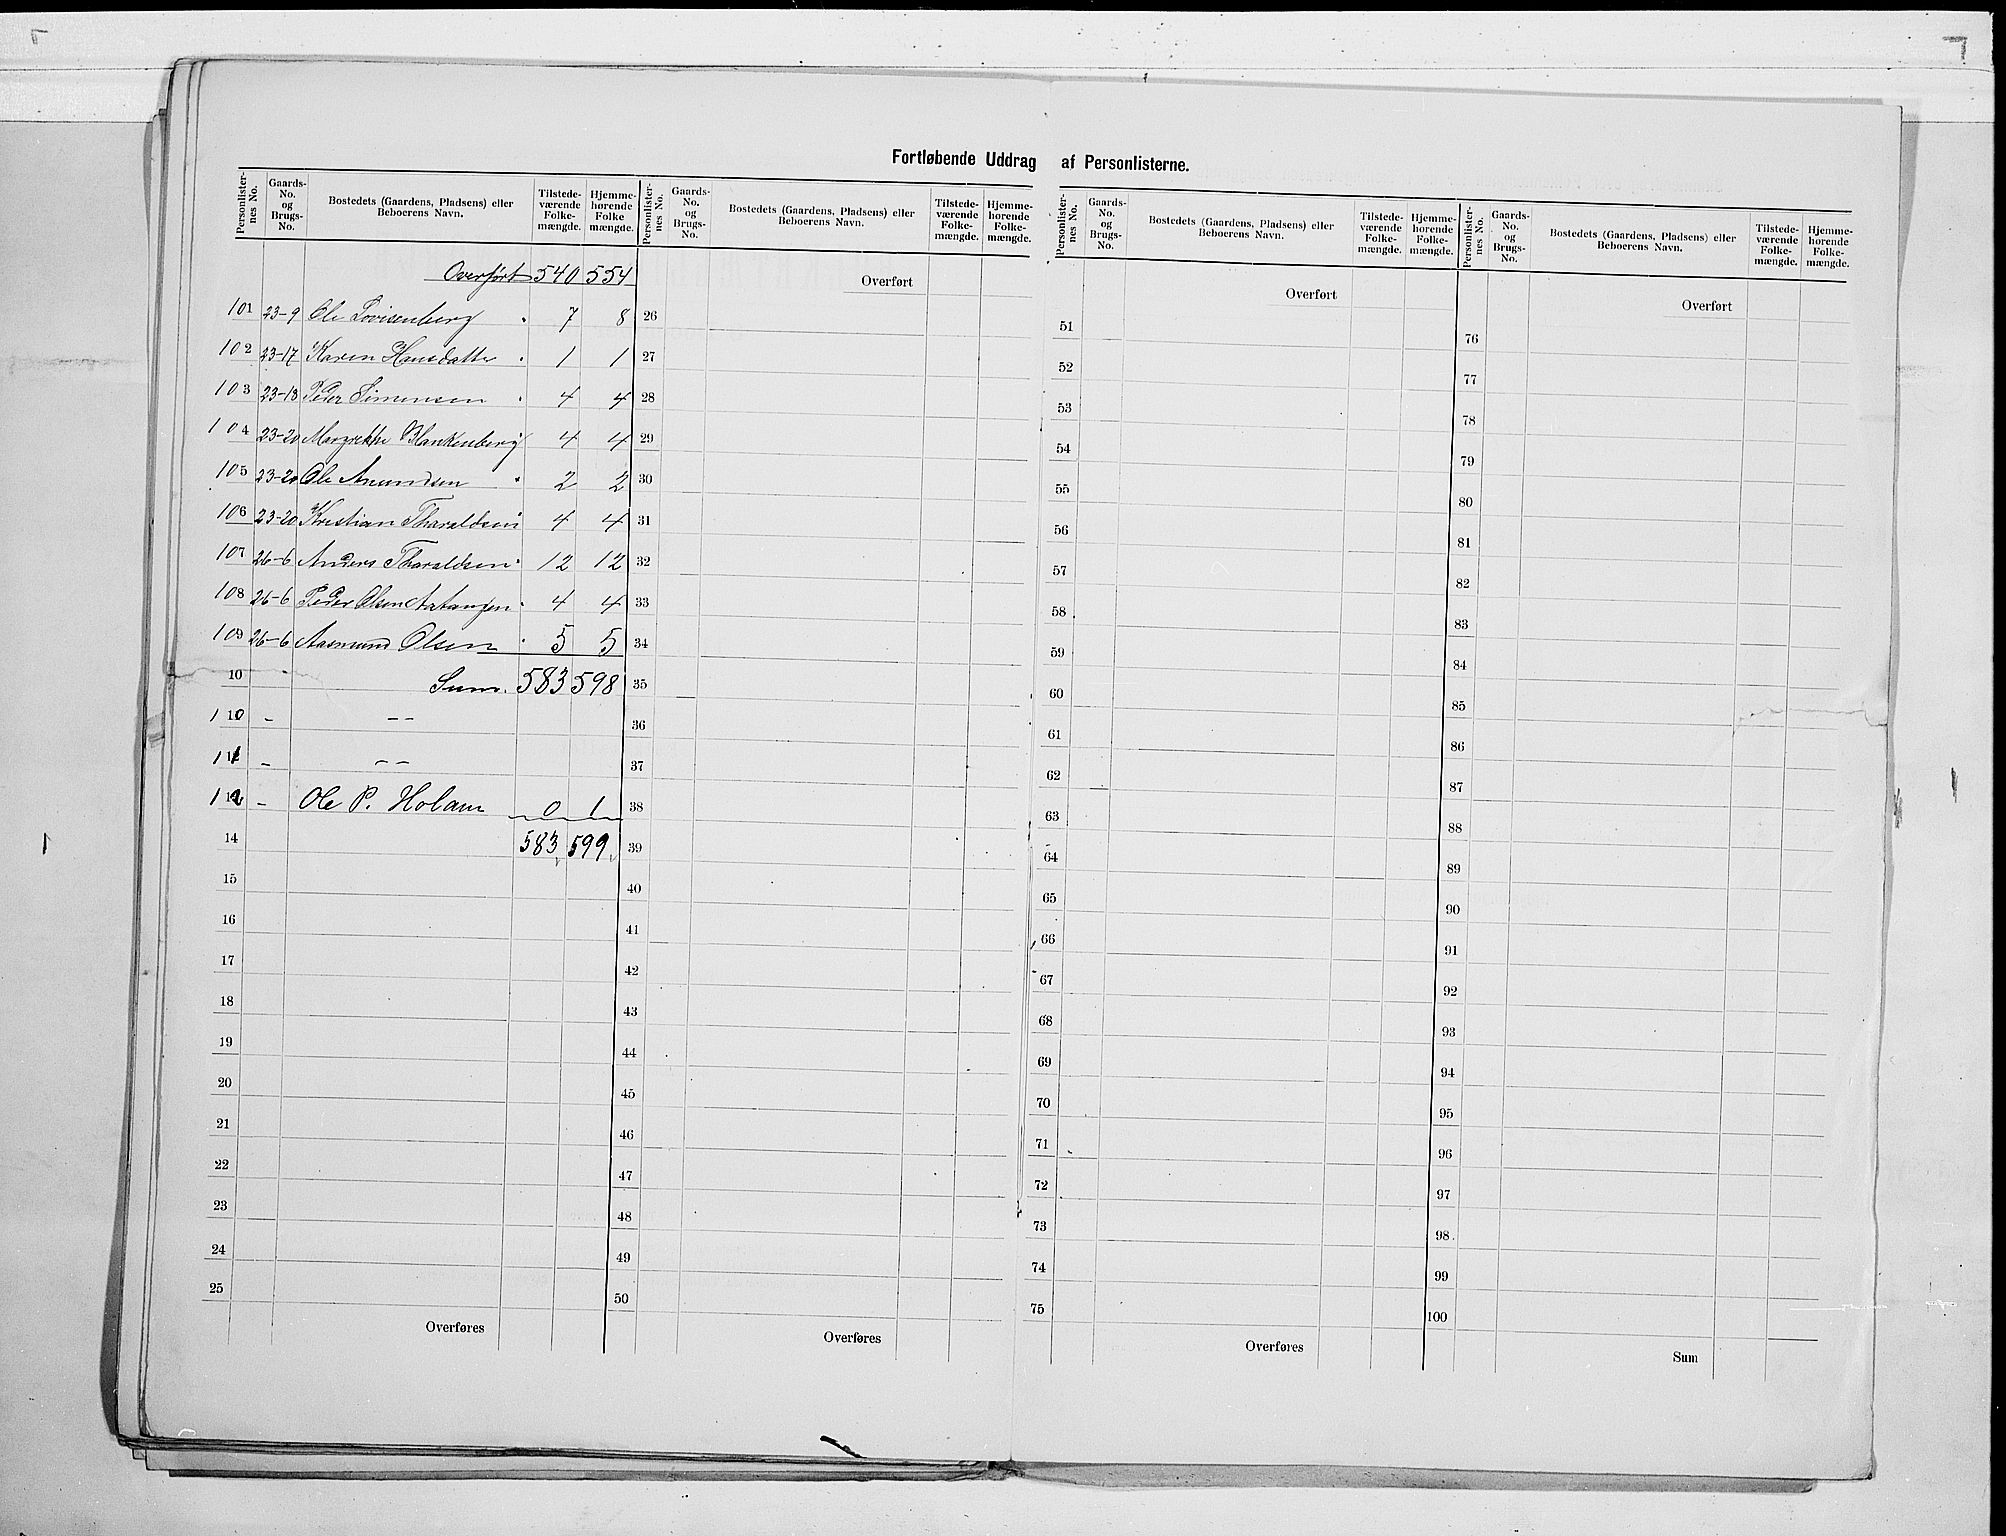 Fortløbende Uddrag af Personlisterne.
Personlister-nes No. Gaards-No. og Brugs-No. Bostedets (Gaardens, Pladsens) eller Beboerens Navn. Tilstede-værende Folke-mængde. Hjemme-hørende Folke mængde.
Overført 540 554
101 23-9 Ole Lovisenberg 7 8
102 23-17 Karen Hansdatter 1 1
103 23-18 Peder Simensen 4 4
104 23-20 Margrethe Blankenberg 4 4
105 23-20 Ole Amundsen 2 2
106 23-20 Kristian Tharaldsen 4 4
107 26-6 Anders Tharaldsen 12 12
108 26-6 Peder Olsen Aatangen 4 4
109 26-6 Aasmund Olsen 5 5
10 Sum. 583 598
110 - - -
111 - - -
112 - Ole P. Holam 0 1
14 583 599
15
16
17
18
19
20
21
22
23
24
25
Overføres
Personlister-nes No. Gaards-No. og Brugs-No. Bostedets (Gaardens, Pladsens) eller Beboerens Navn. Tilstede-værende Folke-mængde. Hjemme-hørende Folke-mængde.
Overført
26
27
28
29
30
31
32
33
34
35
36
37
38
39
40
41
42
43
44
45
46
47
48
49
50
Overføres
Personlister-nes No. Gaards-No. og Brugs-No. Bostedets (Gaardens, Pladsens) eller Beboerens Navn. Tilstede-værende Folke-mængde. Hjemme-hørende Folke-mængde.
Overført
51
52
53
54
55
56
57
58
59
60
61
62
63
64
65
66
67
68
69
70
71
72
73
74
75
Overføres
Personlister-nes No. Gaards-No. og Brugs-No. Bostedets (Gaardens, Pladsens) eller Beboerens Navn. Tilstede-værende Folke-mængde. Hjemme-hørende Folke-mængde.
Overført
76
77
78
79
80
81
82
83
84
85
86
87
88
89
90
91
92
93
94
95
96
97
98
99
100
Sum